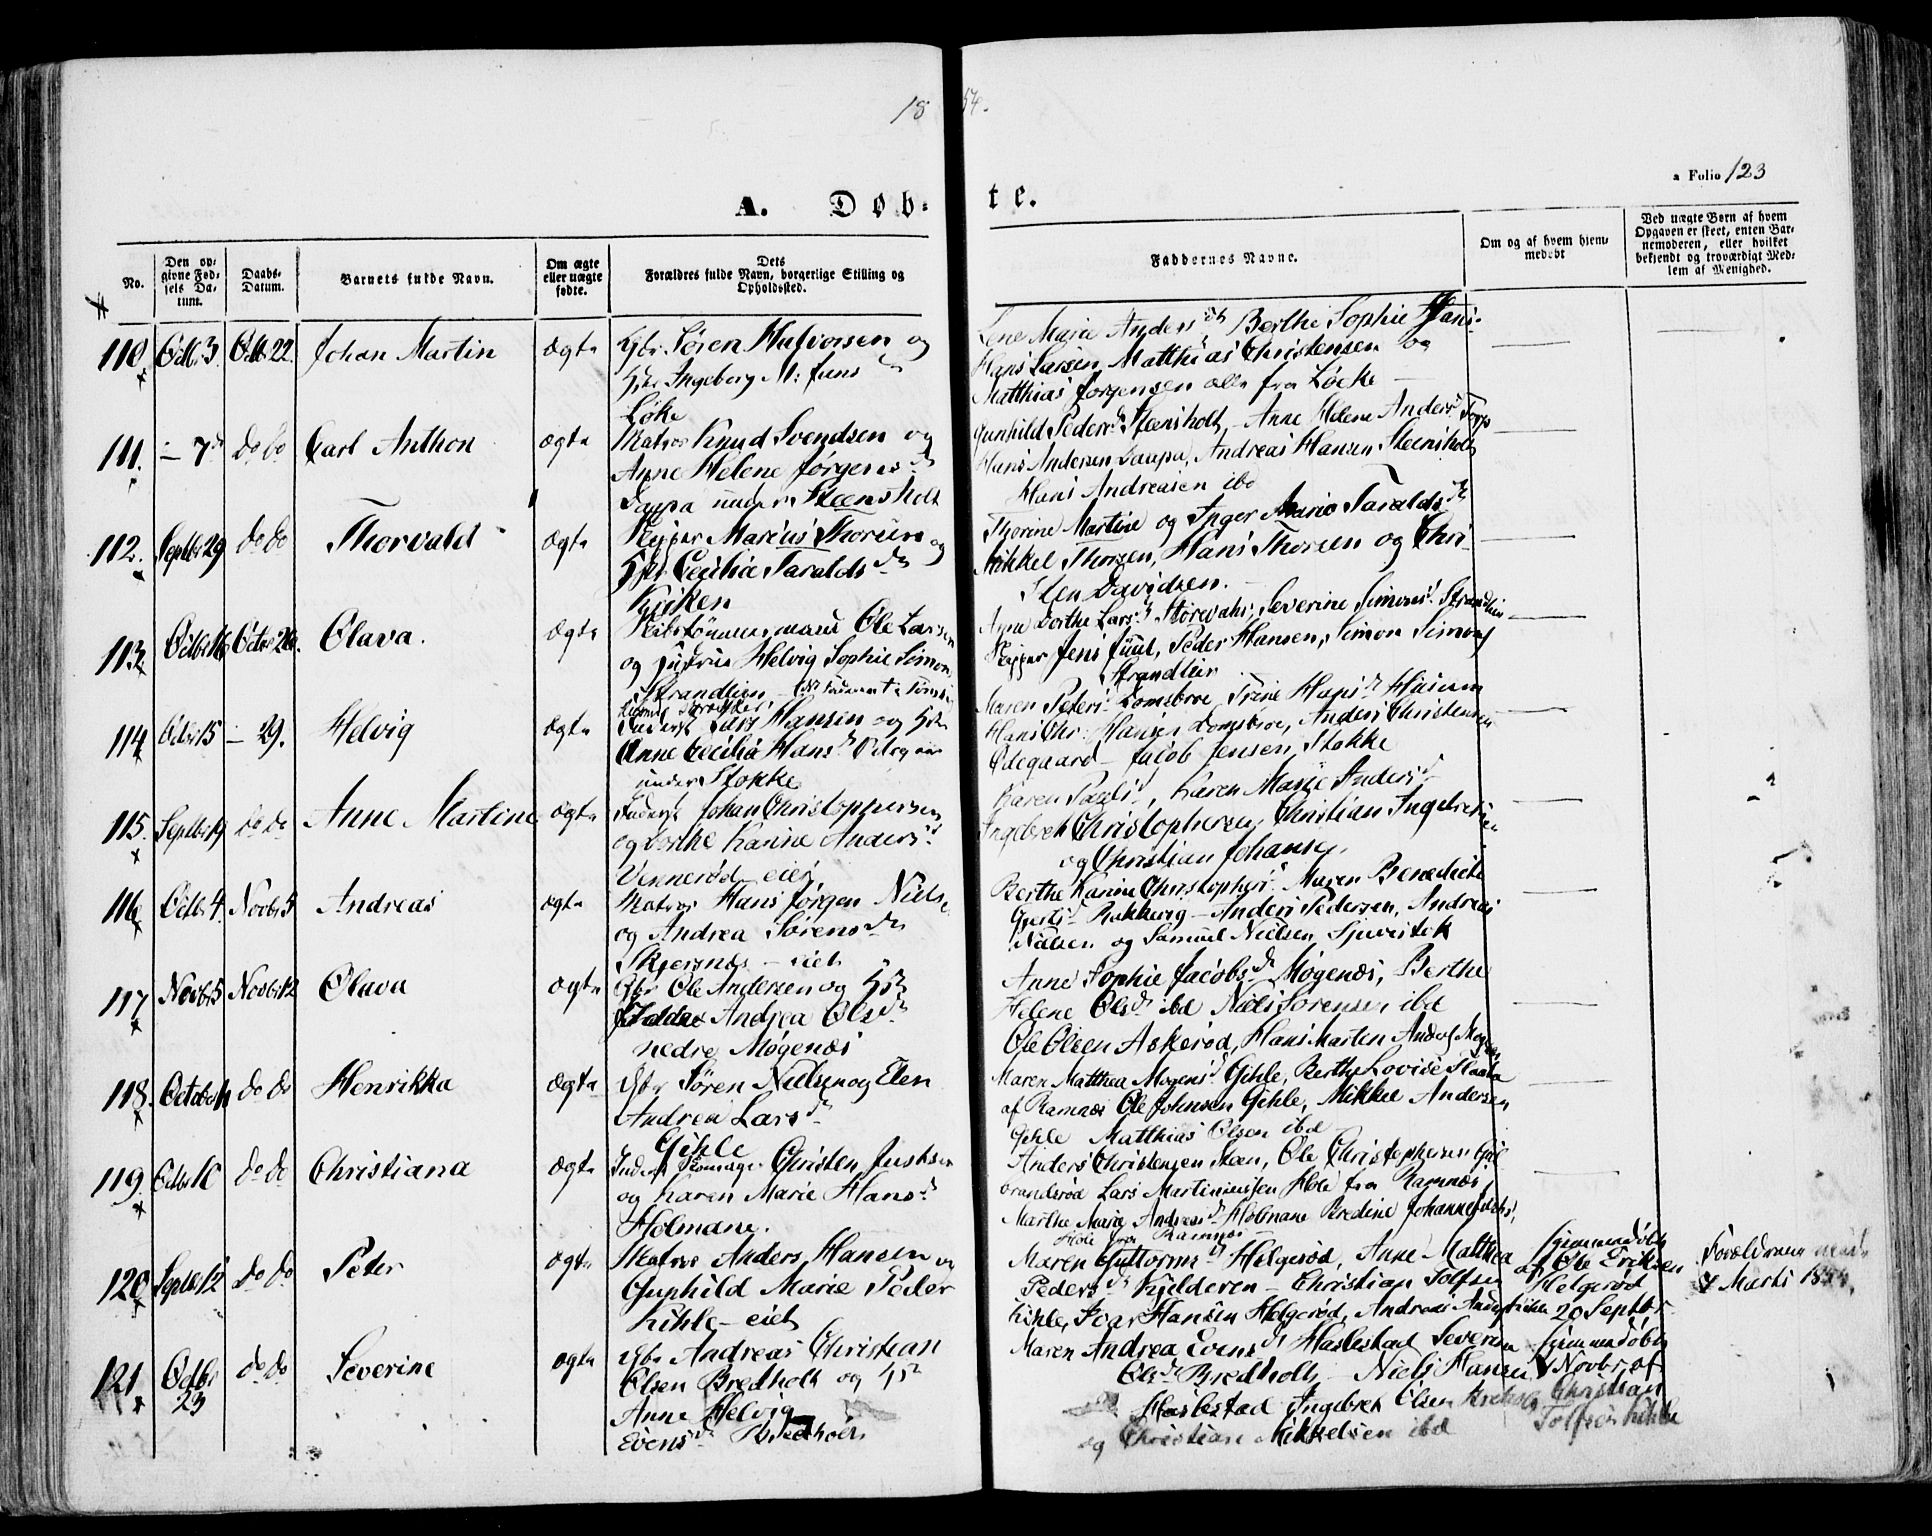 18 54.
a Folio 123
A. Døb- te.
No.
Den opgivne Fødsels Datum.
Daabs-Datum.
Barnets fulde Navn.
Om ægte eller uægte fødte.
Dets Forældres fulde Navn, borgerlige Stilling og Opholdssted.
Faddernes Navne.
Om og af hvem hjemmedøbt
Ved uægte Børn af hvem Opgaven er skeet, enten Barnemoderen, eller hvilket bekjendt og troværdigt Medlem af Menighed.
110. Octbr 3 Octbr 22. Johan Martin ægte Gbr Søren Halvorsen og
Hstr Ingeborg M: Jens dr
Løke
Lene Marie Anders dtr Berthe Sophie Hans-
Hans Larsen, Matthias Christensen og
Matthias Jørgensen alle fra Løcke
111. – 7de do do Carl Anthon ægte Matros Knud Svendsen og
Anne Helene Jørgens dr
Daapa under Steensholt
Gunhild Peders d Steensholt, Anne Helene Anders Torp
Hans Andersen Daapa, Andreas Hansen Steensholt
Hans Andreasen ibd
112. Septbr 29 do do Thorvald ægte Skipper Marius Thorsen og
Hstr Cecilia Taralds dr
Kirken
Thorine Martine og Inger Marie Taralds dr
Mikkel Thorsen, Hans Thorsen og Chri-
sten Davidsen.
113. Octbr 16 Octbr 26. Olava. ægte Skibstømmermand Ole Larsen
og Hustrue Helvig Sophie Simons
Strandlien
Anne Dorthe Lars d Storevahr, Severine Simons d Strandlien
Skipper Jens Juul, Peder Hansen, Simon Simons
Strandlien
114. Octbr 15 – 29. Helvig ægte Hansen og Hstr
Anne Cecilia Hans d Ødegaard
under Stokke
Maren Peders d Domsboe, Trine Hans d Husum
Hans Chr: Hansen Domsboe, Anders Christensen
Ødegaard – Jacob Jensen, Stokke
115. Septbr 19 do do Anne Martine ægte Inderst Johan Christophersen
og Dorthe Karine Anders d
Vennerød eier
Karen Pauls d, Karen Marie Anders d
Ingebreth Christophersen, Christian Ingebretsen
og Christian Johansen
116. Octbr 4 Novbr 5 Andreas ægte Matros Hans Jørgen Nielsen
og Andrea Sørens dr
Skjersnæs – eiet
Berthe Karine Christophers d, Maren Benedicte
Gjerts d Rakkevig – Anders Pedersen, Andreas
Nielsen og Samuel Nielsen Sjuestok
117. Novbr 5 Novbr 12 Olava ægte Gbr Ole Andersen og Hstr
Andrea Ols dr
nedre Mogenæs
Anne Sophie Jacobs d Mogenæs, Berthe
Helene Ols d ibd Niels Sørensen ibd
Ole Olsen Askerød, Hans Marten Anders Mogenæs
118. October do do Henrikka ægte Gbr Søren Nielsen og Elen
Andrea Lars d
Gihle
Maren Matthea Mogens d Gihle, Berthe Lovise
af Ramnæs Ole Johnsen Gihle, Mikkel Andersen
Gihle Matthias Olsen ibd
119. Octbr 10 do do Christiana ægte Inderst Skomager Christen
og Karen Marie Hans d
Holmane.
Anders Christensen Moen, Ole Christophersen Gul-
brandsrød Lars Martiniussen Hoie fra Ramnæs,
Marthe Marie Andreas d Holmane Bredine Johanne
Hoie fra Ramnæs
120. Septbr 12 do do Peter ægte Matros Anders Hansen og
Gunhild Marie Peder
Kihle – eiet
Maren Guttorms d Helgerød, Anne Matthea
Peders d Kjelderen – Christian Tolfsen
Kihle, Ivar Hansen Helgerød, Andreas
hjemmedøbt
af Ole Eriksen
Helgerød
20 Septbr
Forældrene
Marts 1854.
121. Octbr 23 do do Severine ægte Gbr Andreas Christian
Olsen Bredholt og Hstr
Anne Helvig
Evens d Bredholt
Maren Andrea Evens d Haslestad Severine
Ols d Bredholt – Niels Hansen
Haslestad Ingebret Olsen Bredholt
og Christian Mikkelsen ibd
hjemmedøbt
Novbr af
Christian
Tolfsen Kihle